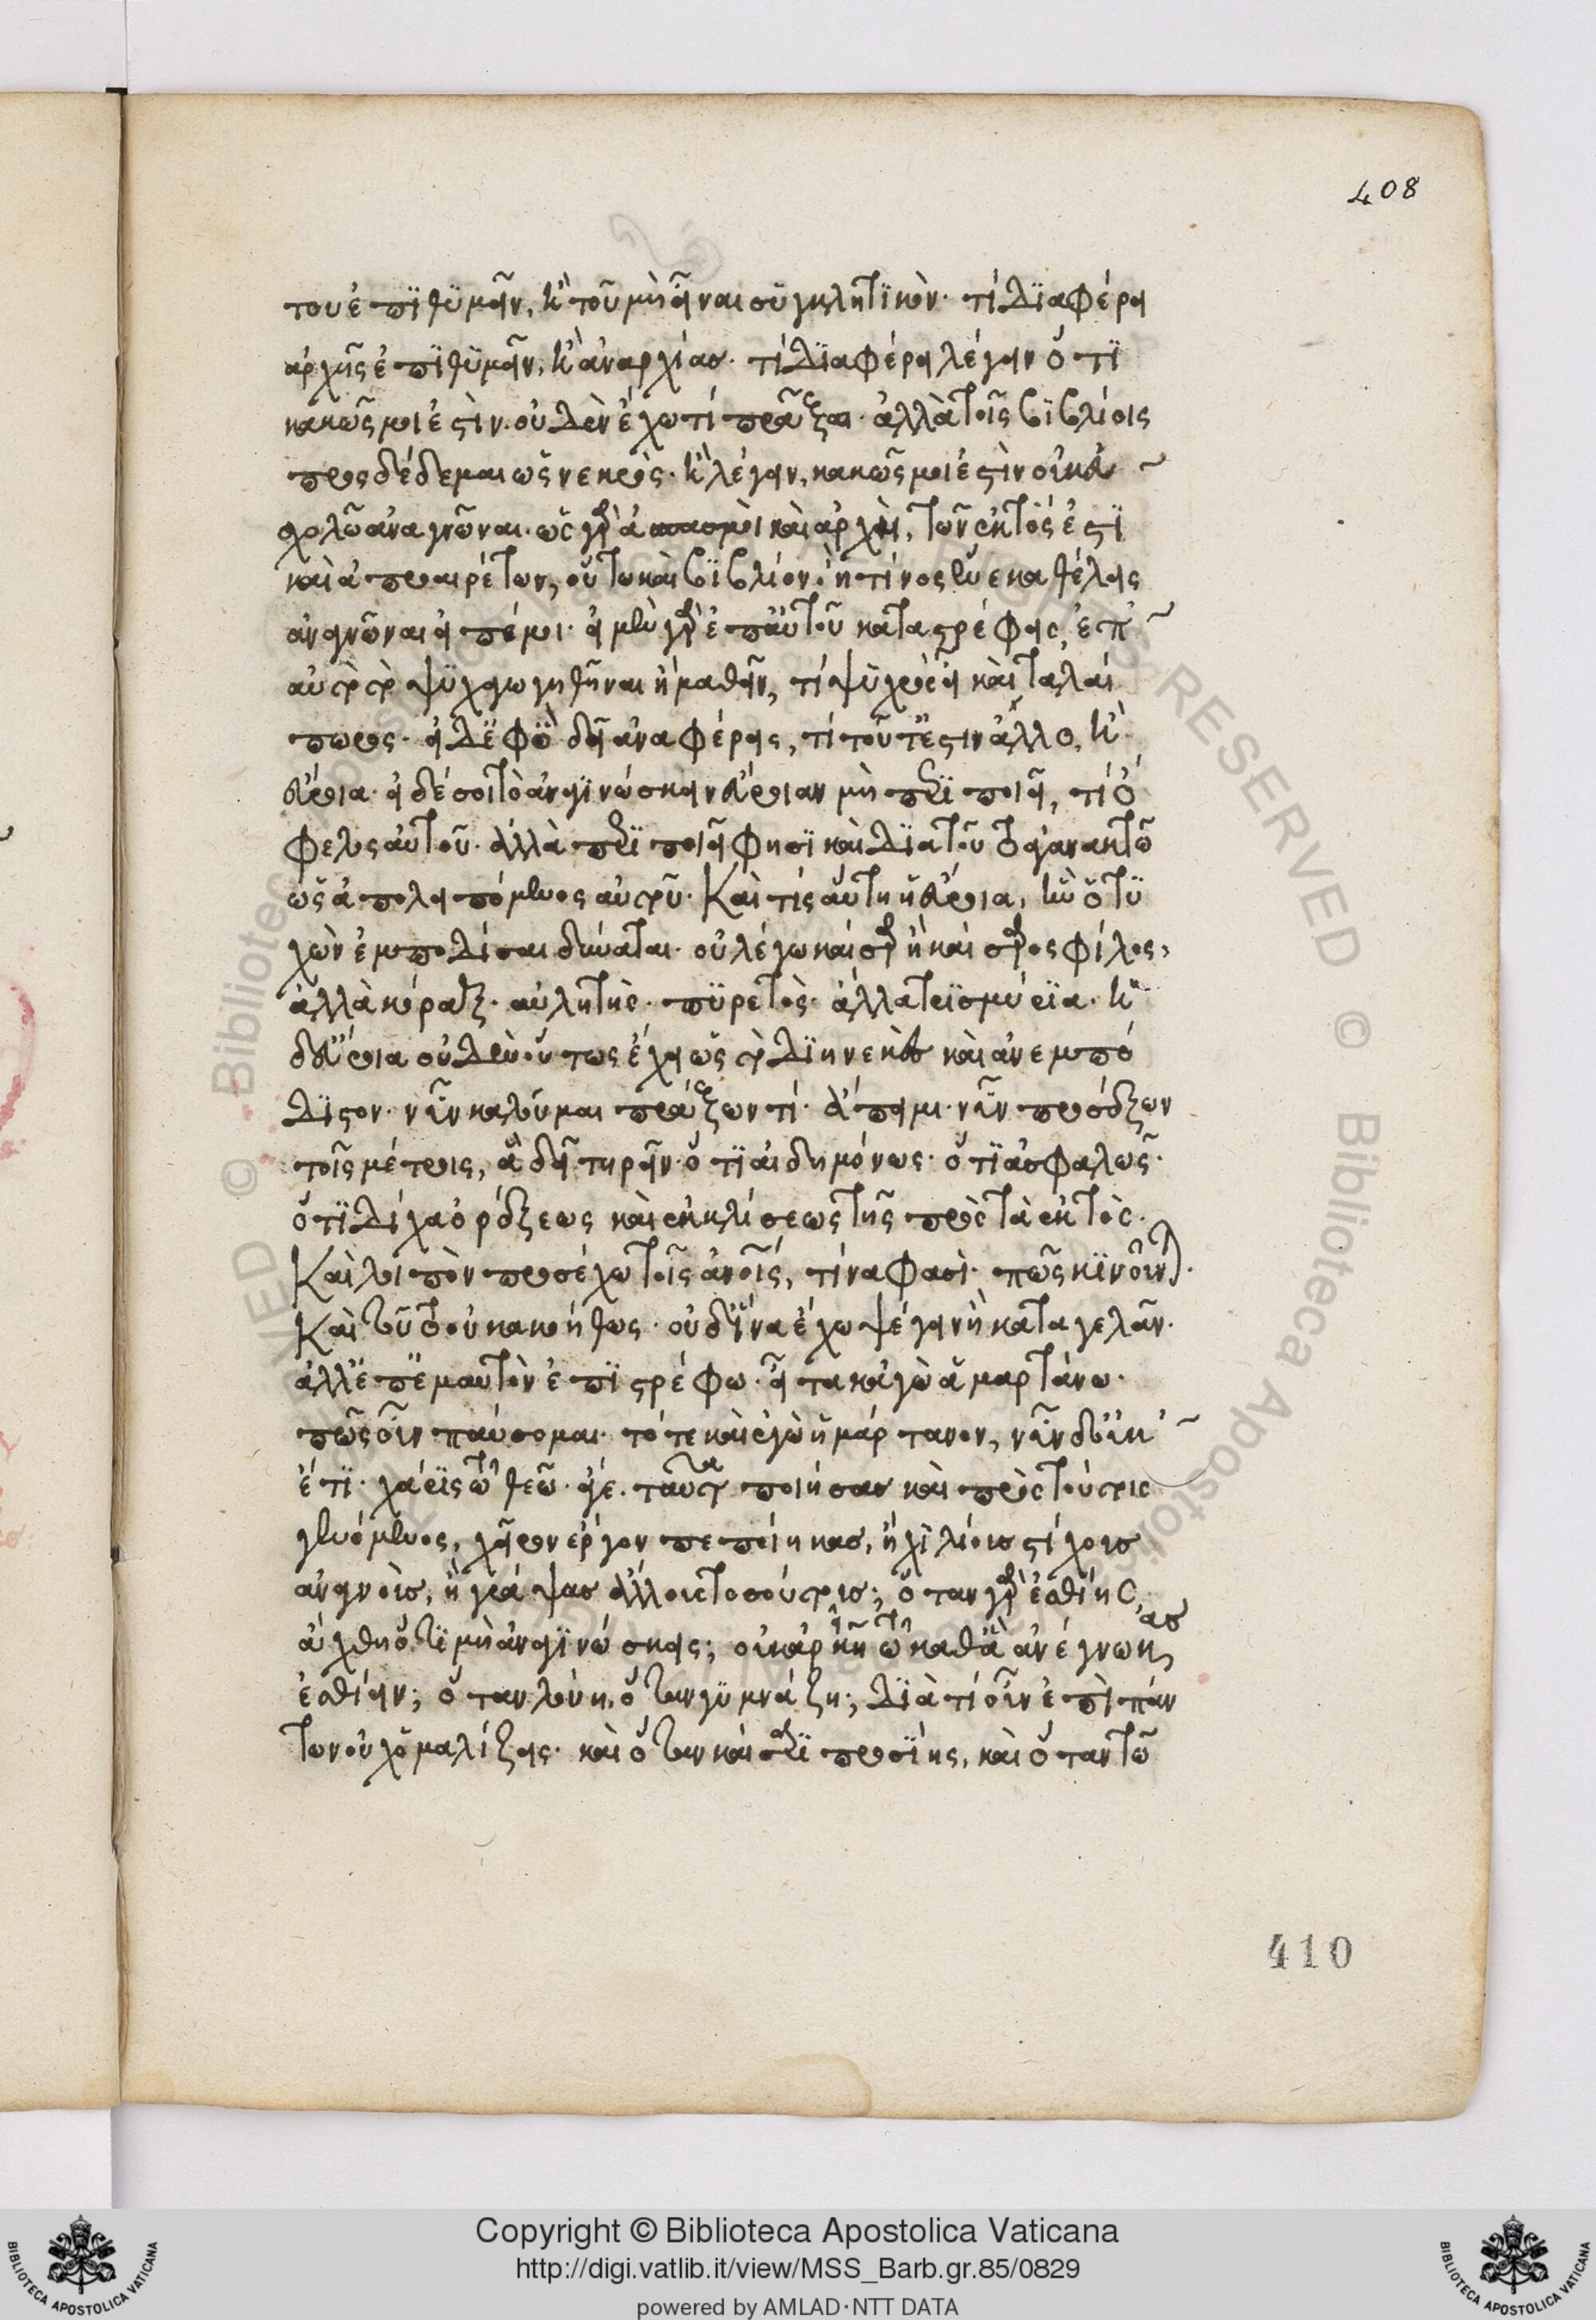 408
του ἐπιθυμεῖν, καὶ τοῦ μὴ εἶναι συγκλητικόν. τί διαφέρει
ἀρχῆς ἐπιθυμεῖν, καὶ ἀναρχίας. τί διαφέρει λέγειν ὅτι
κακῶς μοί ἐστιν. οὐδὲν ἔχω τί πράξαι. ἀλλὰ τοῖς βιβλίοις
προσδέδεμαι ὡς νεκρός. καὶ λέγειν, κακῶς μοί ἐστιν οὐκ εὐ
σχολῶ ἀναγνῶναι. ὡς γὰρ ἀσπασμοὶ καὶ ἀρχὴ, τῶν ἐκτός ἐστι
καὶ ἀπροαιρέτων, οὕτω καὶ βιβλίον. ἢ τίνος ἕνεκα θέλεις
ἀναγνῶναι εἰπέ μοι. εἰ μὲν γὰρ ἐπ' αὐτοῦ καταστρέφεις, ἐπ
αὐτὸ τὸ ψυχαγωγηθῆναι ἢ μαθεῖν, τί ψυχρὸς εἶ καὶ ταλαί
πωρος. εἰ δ' ἐφ' ὃ δεῖ ἀναφέρεις, τί τοῦτ' ἔστιν ἄλλο, ἢ
εὔροια. εἰ δέ σοι τὸ ἀναγινώσκειν εὔροιαν μὴ περιποιεῖ, τί ὄ
φελος αὐτοῦ. ἀλλὰ περιποιεῖ φησὶ καὶ διὰ τοῦτο ἀγανακτῶ
ὡς ἀπολειπόμενος αὐτοῦ. Καὶ τίς αὕτη ἡ εὔροια, ἣν ὁ τυ
χὼν ἐμποδίσαι δύναται. οὐ λέγω καίσαρ ἢ καίσαρος φίλος,
ἀλλὰ κόραξ. αὐλητής. πυρετός. ἄλλα τρισμύρια. ἡ
δ' εὔροια οὐδὲν οὕτως ἔχει ὡς τὸ διηνεκὲς καὶ ἀνεμπό
διστον. νῦν καλοῦμαι πράξων τί. ἄπειμι νῦν προσέξων
τοῖς μέτροις, ἃ δεῖ τηρεῖν. ὅτι αἰδημόνως. ὅτι ἀσφαλῶς.
ὅτι δίχα ὀρέξεως καὶ ἐκκλίσεως τῆς πρὸς τὰ ἐκτός.
Καὶ λοιπὸν προσέχω τοῖς ἀνοις, τίνα φασὶ. πῶς κινοῦνται.
Καὶ τοῦτο οὐ κακοήθως. οὐδ' ἵνα ἔχω ψέγειν ἢ καταγελᾶν.
ἀλλ' ἐπ' ἐμαυτὸν ἐπιστρέφω. εἰ ταὐτὰ κἀγὼ ἁμαρτάνω.
πῶς οὖν παύσομαι. τότε καὶ ἐγὼ ἡμάρτανον, νῦν δ' οὐκ
ἔτι. χάρις τῷ θεῷ. ἄγε. ταῦτα ποιήσας καὶ πρὸς τούτοις
γενόμενος, χεῖρον ἔργον πεποίηκας, ἢ χιλίους στίχους
ἀναγνοὺς, ἢ γράψας ἄλλους τοσούτους; ὅταν γὰρ ἐσθίῃς
ἄχθῃ ὅτι μὴ ἀναγινώσκεις; οὐκ ἀρκεῖ τῷ καθ' ἃ ἀνέγνωκας
ἐσθίειν; ὅταν λούῃ, ὅταν γυμνάζῃ; διὰ τί οὖν ἐπὶ πάν
των οὐχ ὁμαλίζεις. καὶ ὅταν καίσαρι προσίῃς, καὶ ὅταν τῷ
410
Copyright © Biblioteca Apostolica Vaticana
http://digi.vatlib.it/view/MSS_Barb.gr.85/0829
powered by AMLAD·NTT DATA